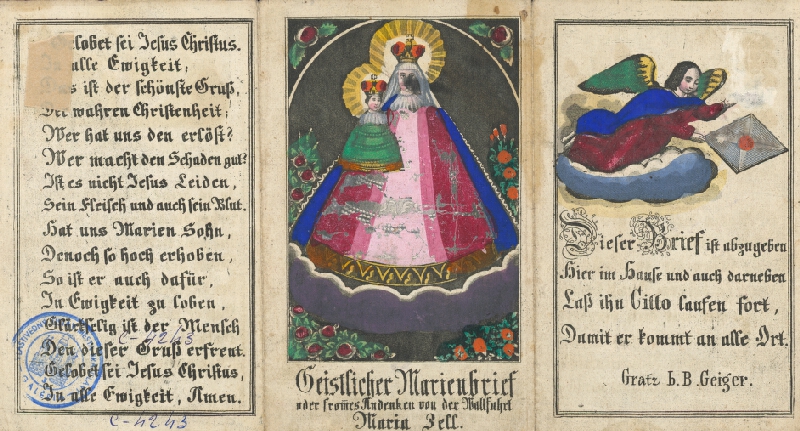 Gelobet sei Jesus Christus.
In alle Ewigkeit,
ist der schönste Gruß,
Der wahren Christenheit,
Wer hat uns den erlöst?
Wer macht den Schaden gut?
Ist es nicht Jesus Leiden,
Sein Fleisch und auch sein Blut.
Hat uns Marien Sohn,
Denoch so hoch erhoben,
So ist er auch dafür,
In Ewigkeit zu loben,
Glückselig ist der Mensch
Den dieser Gruß erfreut.
Gelobet sei Jesus Christus,
In alle Ewigkeit, Amen.
C-4243
C-4243
Geistlicher Marienbrief
oder fromes Andenken von der Wallfahrt
Maria Zell.
Dieser Brief ist abzugeben
Hier im Hause und auch darneben
Laß ihn Citto laufen fort,
Damit er kommt an alle Ort.
Gratz b. B. Geiger.